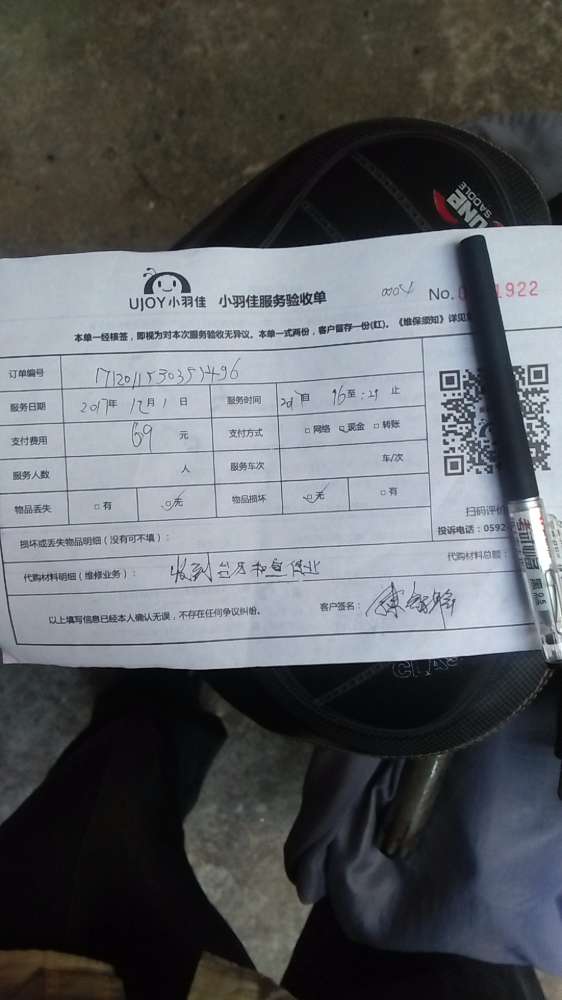 UNE
SADDLE
UJOY小羽佳 小羽佳服务验收单 0004 No. 1922
本单一经核签，即视为对本次服务验收无异议。本单一式两份，客户留存一份(红)。《维保须知》详见
订单编号
服务日期 2017年 12月 1 日 服务时间 自 至 止
支付费用 69 元 支付方式 □网络 □现金 □转账
服务人数 人 服务车次 车/次
物品丢失 □有 □无 物品损坏 □无 □有
扫码评价
投诉电话：0592-
损坏或丢失物品明细（没有可不填）：
代购材料明细（维修业务）： 收到 代购材料总额：
以上填写信息已经本人确认无误，不存在任何争议纠纷。 客户签名：